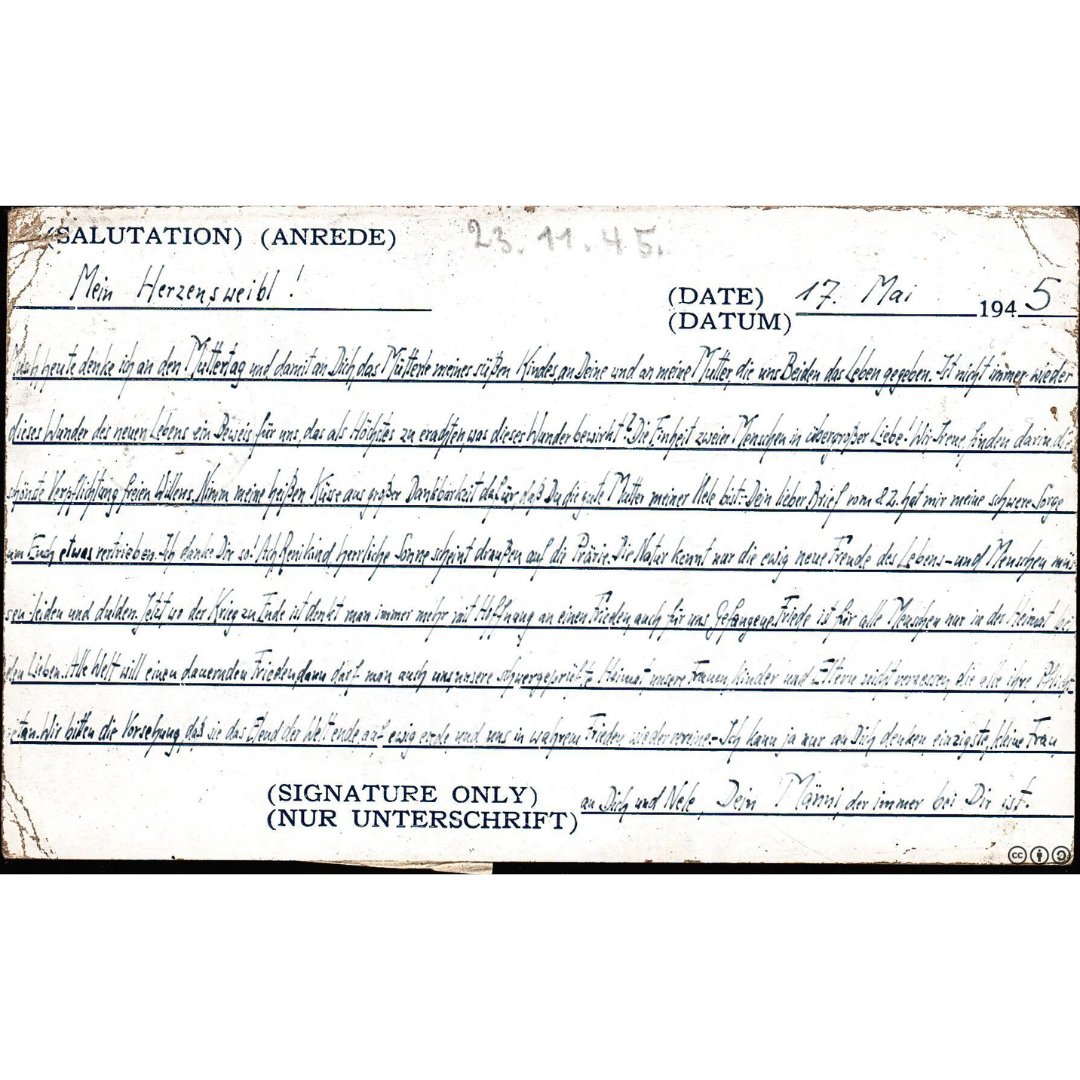 (SALUTATION) (ANREDE)
23.11.45.
Mein Herzensweibl!
(DATE) 17. Mai 1945
(DATUM)
Auch heute denke ich an den Muttertag und damit an Dich das Mütterle meines süßen Kindes, an Deine und an meine Mutter, die uns Beiden das Leben gegeben. - Ist nicht immer wieder
dieses Wunder des neuen Lebens ein Beweis für uns, das als Höchstes zu erachten was dieses Wunder bewirkt? Die Einheit zweier Menschen in übergroßer Liebe! Wir, Irene, finden darin die
schönste Verpflichtung freien Willens. Nimm meine heißen Küsse aus großer Dankbarkeit dafür daß Du die gute Mutter meiner Nele bist. - Dein lieber Brief vom 22. hat mir meine schwere Sorge
um Euch etwas vertrieben. - Ich danke Dir so! Ach Renikind, herrliche Sonne scheint draußen auf die Prärie. Die Natur kennt nur die ewig neue Freude des Lebens - und Menschen müs-
sen leiden und dulden. Jetzt wo der Krieg zu Ende ist denkt man immer mehr mit Hoffnung an einen Frieden, auch für uns Gefangene. Friede ist für alle Menschen nur in der Heimat bei
den Lieben. Alle Welt will einen dauernden Frieden, dann darf man auch uns, unsere schwergeprüfte Heimat, unsere Frauen, Kinder und Eltern nicht vergessen, die alle ihre Pflicht
getan. Wir bitten die Vorsehung, daß sie das Elend der Welt ende auf ewig und uns in wahrem Frieden wiedervereine. - Ich kann ja nur an Dich denken einzigste, kleine Frau,
(SIGNATURE ONLY) an Dich und Nele, Dein Männi, der immer bei Dir ist.
(NUR UNTERSCHRIFT)